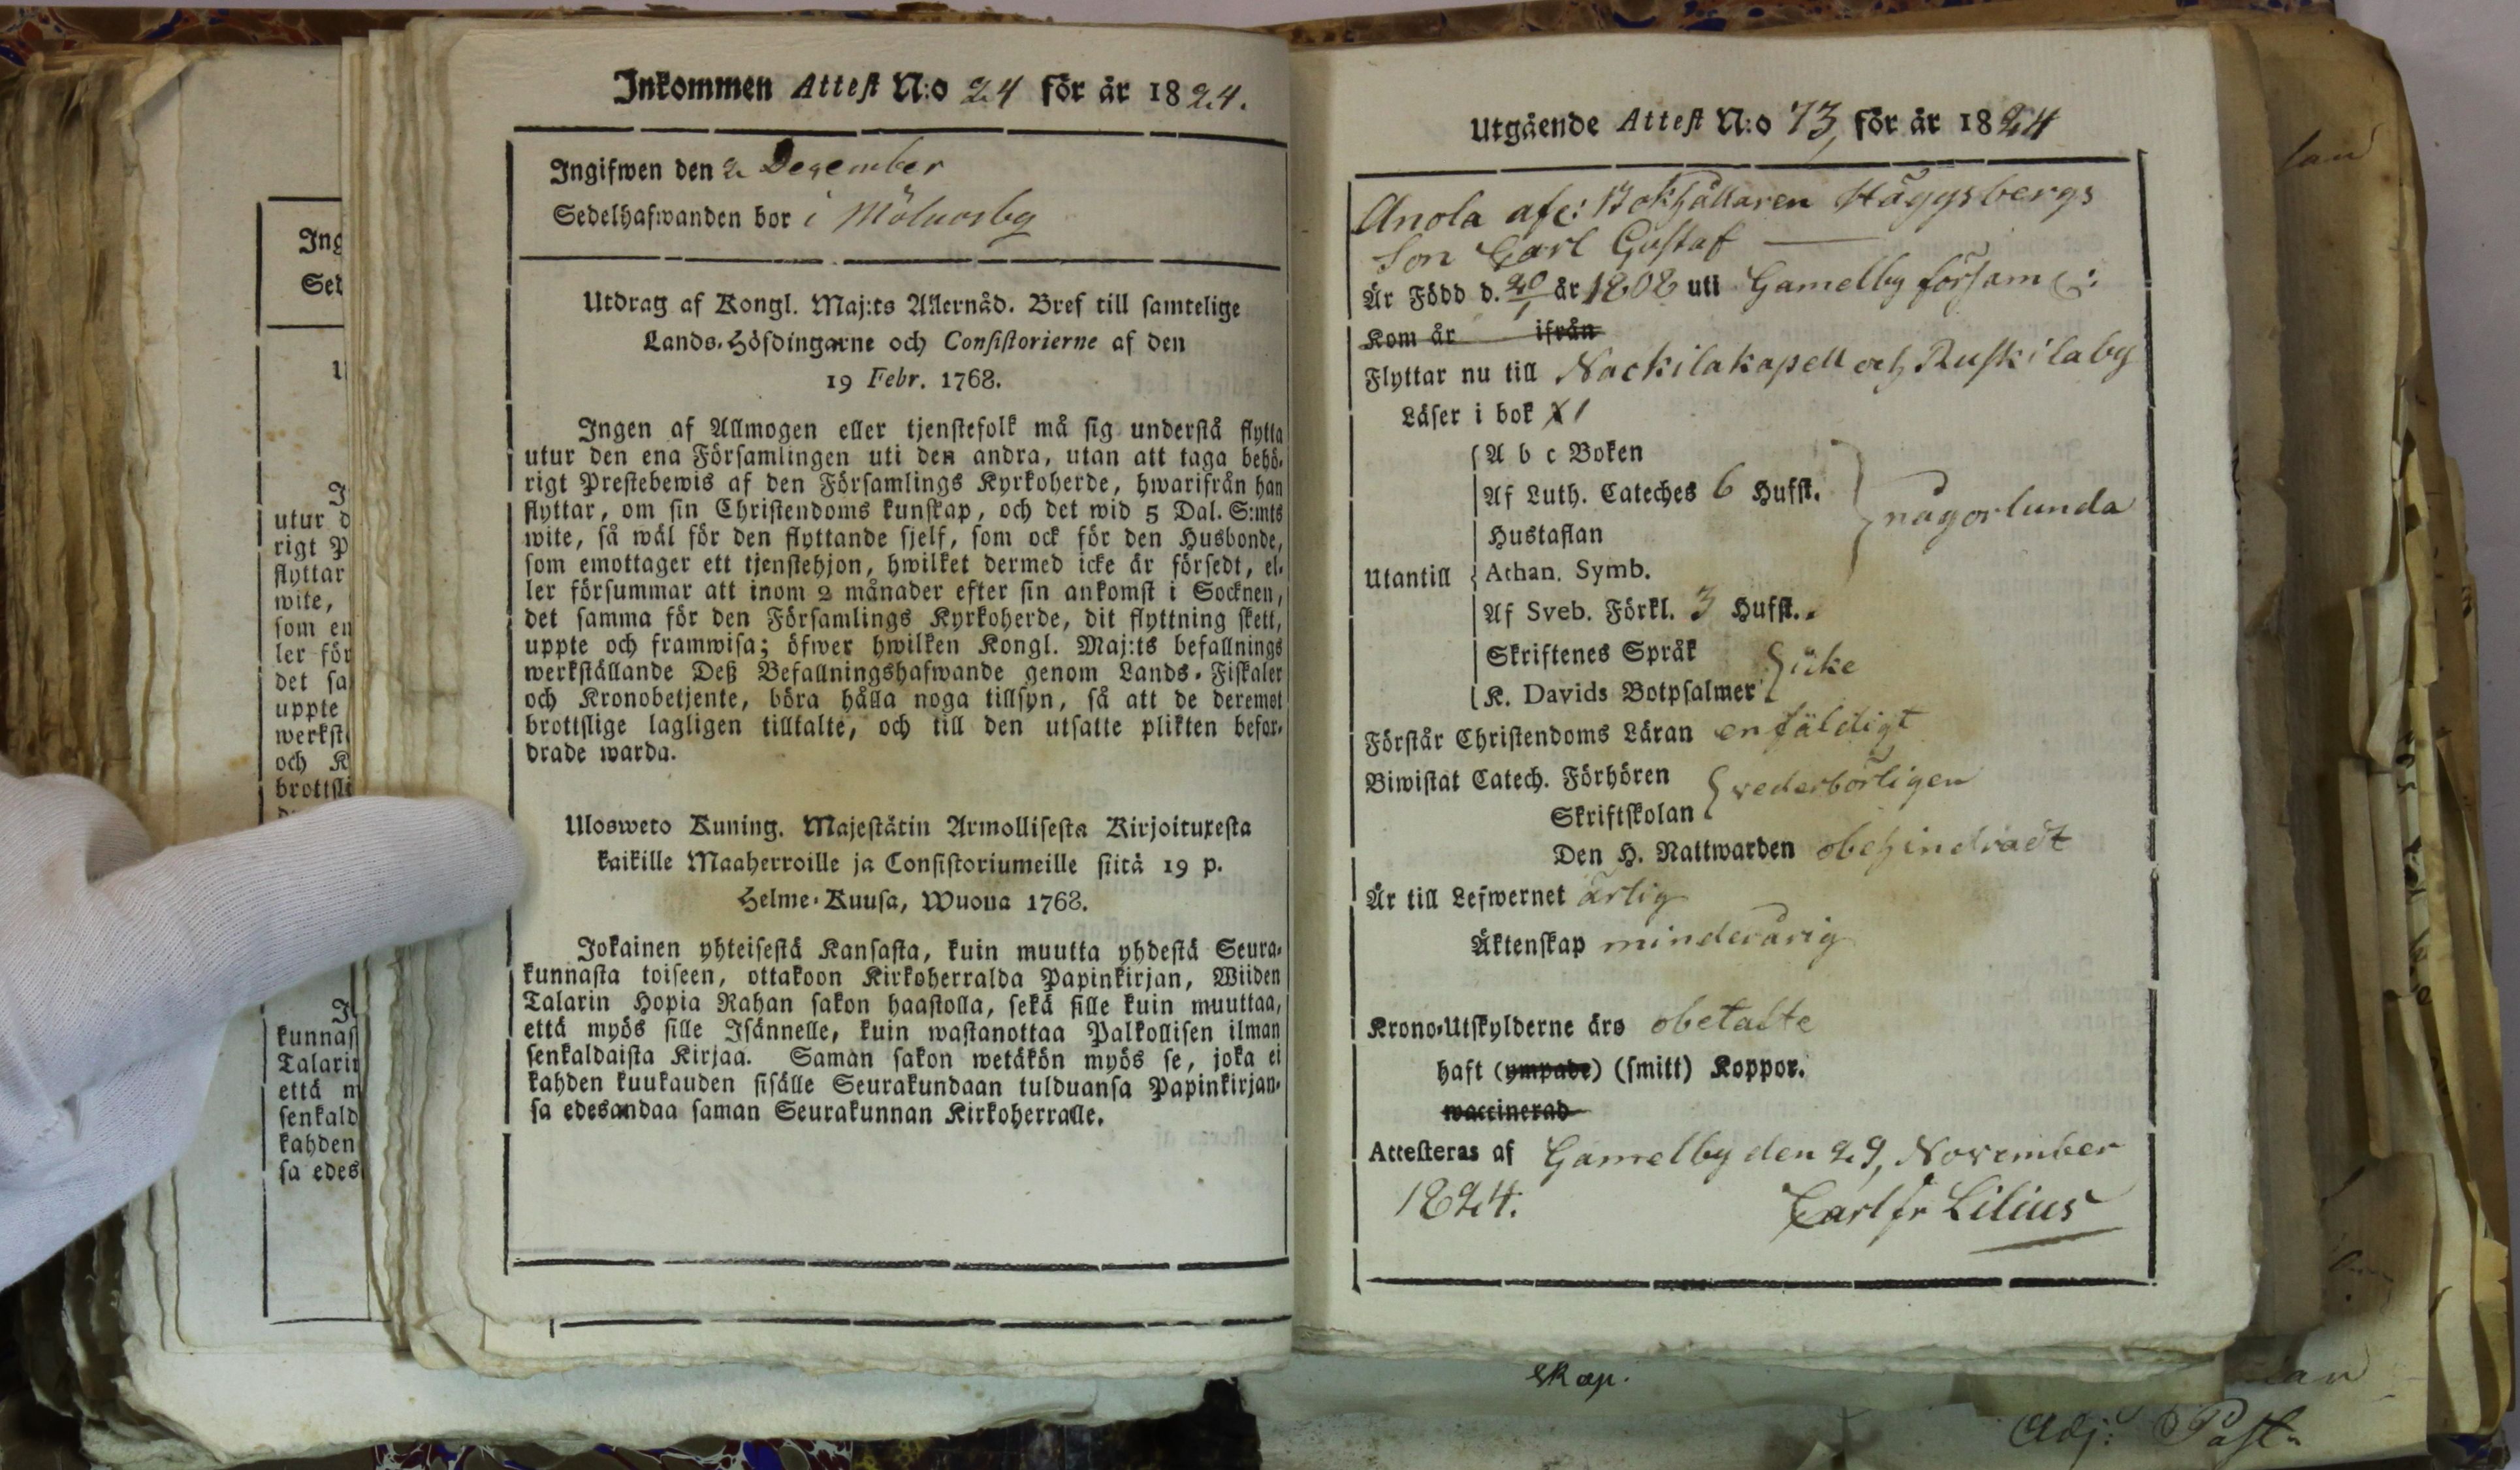 Inkommen Attest N:o 24 för år 1824.
Ingifwen den 2 December
Sedelhafwanden bor i
Utdrag af Kongl. Maj:ts Allernåd. Bref till samtelige
Lands-Höfdingarne och Consistorierne af den
19 Febr. 1768.
Ingen af Allmogen eller tjenstefolk må sig understå flytta
utur den ena Församlingen uti den andra, utan att taga behö-
rigt Prestebewis af den Församlings Kyrkoherde, hwarifrån han
flyttar, om sin Christendoms kunskap, och det wid 5 Dal. S:mts
wite, så wäl för den flyttande sjelf, som ock för den Husbonde,
som emottager ett tjenstehjon, hwilket dermed icke är försedt, el-
ler försummar att inom 2 månader efter sin ankomst i Socknen,
det samma för den Församlings Kyrkoherde, dit flyttning skett,
uppte och framwisa; öfwer hwilken Kongl. Maj:ts befallnings
werkställande Deß Befallningshafwande genom Lands-Fiskaler
och Kronobetjente, böra hålla noga tillsyn, så att de deremot
brottslige lagligen tilltalte, och till den utsatte plikten befor-
drade warda.
Ulosweto Kuning. Majestätin Armollisesta Kirjoituxesta
kaikille Maaherroille ja Consistoriumeille siitä 19 p.
Helme-Kuusa, Wuona 1768.
Jokainen yhteisestä Kansasta, kuin muutta yhdestä Seura-
kunnasta toiseen, ottakoon Kirkoherralda Papinkirjan, Wiiden
Talarin Hopia Rahan sakon haastolla, sekä sille kuin muuttaa,
että myös sille Isännelle, kuin wastanottaa Palkollisen ilman
senkaldaista Kirjaa. Saman sakon wetäkön myös se, joka ei
kahden kuukauden sisälle Seurakundaan tulduansa Papinkirjan-
sa edesandaa saman Seurakunnan Kirkoherralle.
Utgående Attest N:o 73 för år 1824
Anola afc: Bokhållaren Häggsbergs
Son Carl Gustaf
Är Född d. 20/1 år 1808 uti Gamelby försam:
Kom år ifrån
Flyttar nu till Nackilakapell och Ruskilaby
Läser i bok 1
A b c Boken
Af Luth. Cateches 6 Hufst.
någorlunda
Hustaflan
Utantill Athan. Symb.
Af Sveb. Förkl. 3 Hufst.
Skriftenes Språk
icke
K. Davids Botpsalmer
Förstår Christendoms Läran enfäldigt
Biwistat Catech. Förhören
vederbörligen
Skriftskolan
Den H. Nattwarden obehindradt
Är till Lefwernet ärlig
Äktenskap minderårig
Krono-Utskylderne äro obetalte
haft (ympade) (smitt) Koppor.
waccinerad
Attesteras af Gamelby den 29, November
1824.
Carl Fr Lilius
skap.
Adj: Past:
Ing
Sed
utur d
rigt P
flyttar
wite,
som en
ler för
det sa
uppte
werkst
och K
brottsli
kunnas
Talarin
että m
senkald
kahden
sa edes